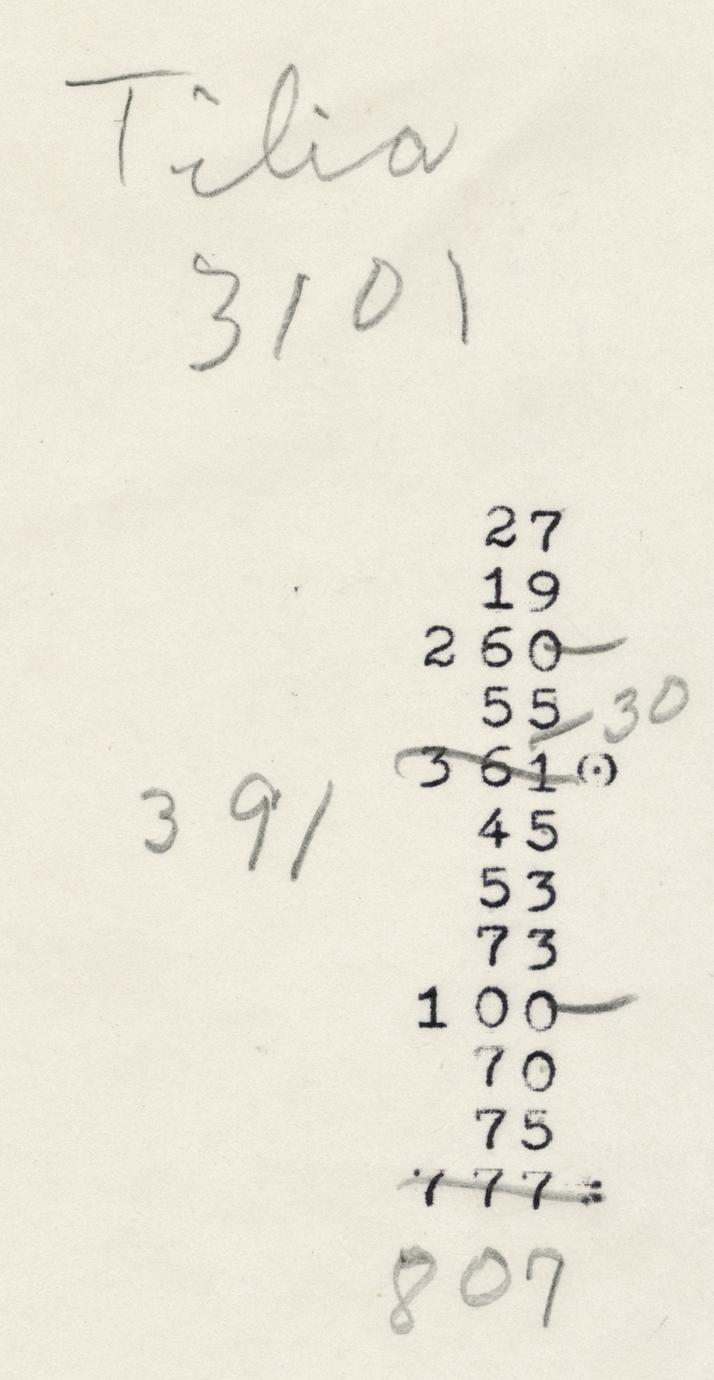 Tilia
3101
27
19
260
55
30
361 ⊙
391
45
53
73
100
70
75
777 :
807